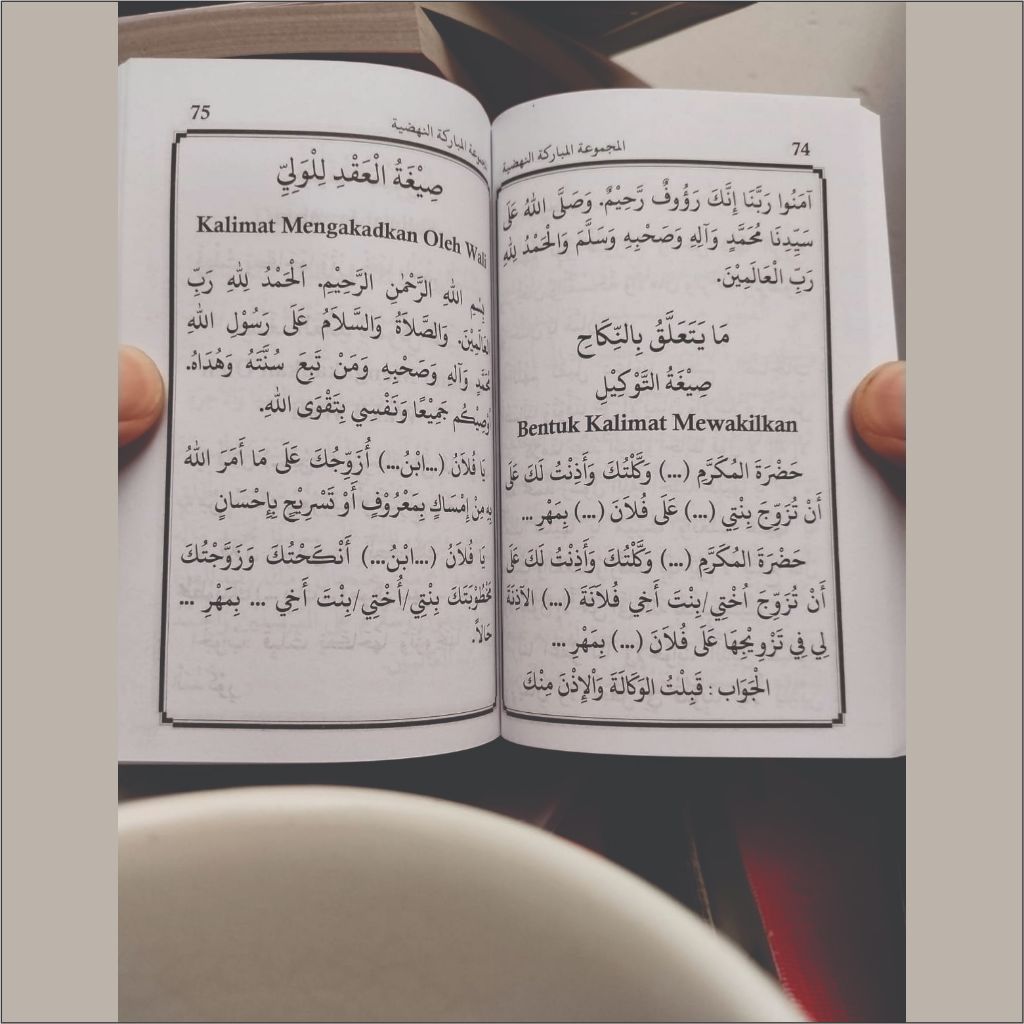 74
المجموعة المباركة النهضية
آمَنُوا رَبَّنَا إِنَّكَ رَؤُوفٌ رَّحِيْمٌ. وَصَلَّى اللهُ عَلَى
سَيِّدِنَا مُحَمَّدٍ وَآلِهِ وَصَحْبِهِ وَسَلَّمَ وَالْحَمْدُ لِلهِ
رَبِّ الْعَالَمِيْنَ.
مَا يَتَعَلَّقُ بِالنِّكَاحِ
صِيْغَةُ التَّوْكِيْلِ
Bentuk Kalimat Mewakilkan
حَضْرَةَ المُكَرَّمِ (...) وَكَّلْتُكَ وَأَذِنْتُ لَكَ عَلَى
أَنْ تُزَوِّجَ بِنْتِي (...) عَلَى فُلَانَ (...) بِمَهْرِ ...
حَضْرَةَ المُكَرَّمِ (...) وَكَّلْتُكَ وَأَذِنْتُ لَكَ عَلَى
أَنْ تُزَوِّجَ اُخْتِي/بِنْتَ أَخِي فُلَانَةَ (...) الآذِنَةَ
لِي فِي تَزْوِيْجِهَا عَلَى فُلَانَ (...) بِمَهْرِ ...
الْجَوَاب : قَبِلْتُ الوَكَالَةَ وَالْإِذْنَ مِنْكَ
75
المباركة النهضية
صِيْغَةُ الْعَقْدِ لِلْوَلِيِّ
Kalimat Mengakadkan Oleh Wali
بِسْمِ اللهِ الرَّحْمٰنِ الرَّحِيْمِ. اَلْحَمْدُ لِلهِ رَبِّ
الْعَالَمِيْنَ. وَالصَّلَاةُ وَالسَّلَامُ عَلَى رَسُوْلِ اللهِ
مُحَمَّدٍ وَآلِهِ وَصَحْبِهِ وَمَنْ تَبِعَ سُنَّتَهُ وَهُدَاهُ.
أُوْصِيْكُم جَمِيْعًا وَنَفْسِي بِتَقْوَى اللهِ.
يَا فُلَانُ (...ابْنُ...) أُزَوِّجُكَ عَلَى مَا أَمَرَ اللهُ
بِهِ مِنْ إِمْسَاكٍ بِمَعْرُوْفٍ أَوْ تَسْرِيْحٍ بِإِحْسَانٍ
يَا فُلَانُ (...ابْنُ...) أَنْكَحْتُكَ وَزَوَّجْتُكَ
مَخْطُوْبَتَكَ بِنْتِي/أُخْتِي/بِنْتَ أَخِي ... بِمَهْرِ ...
حَالاً.